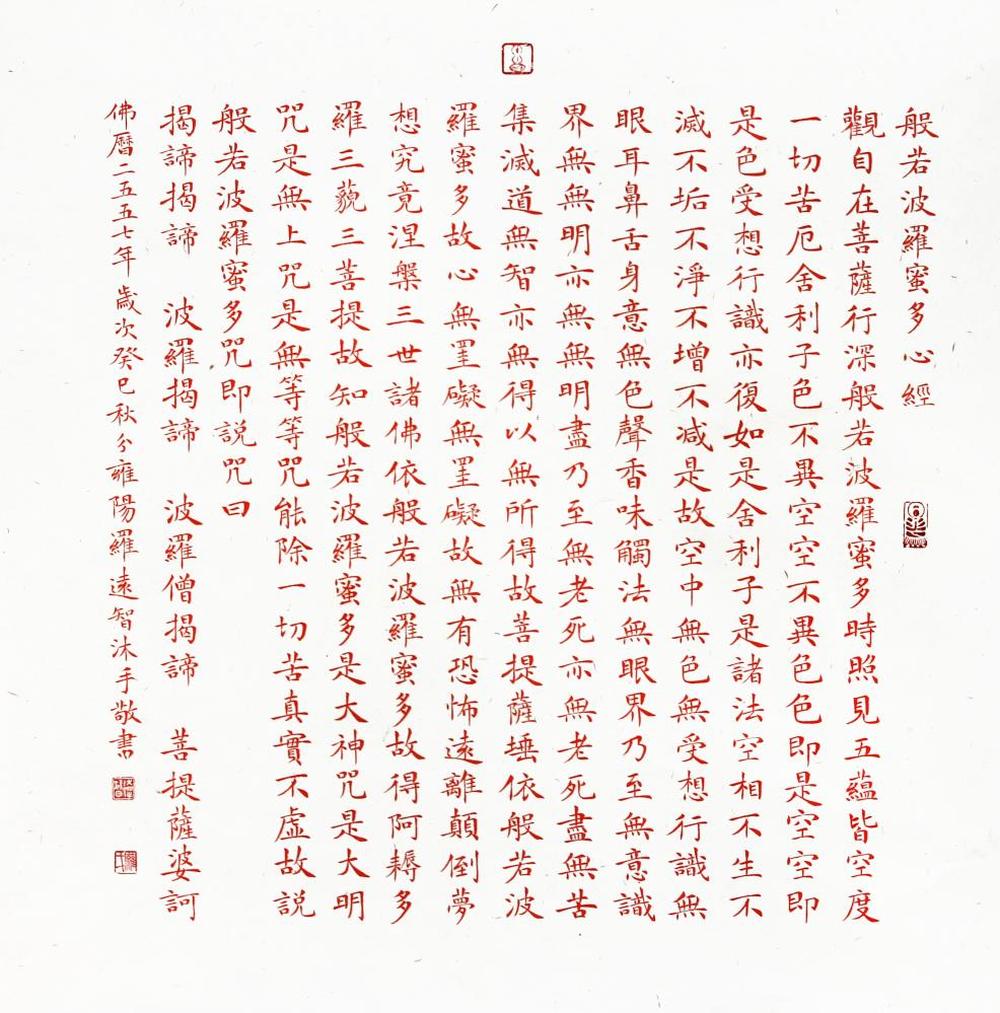 般若波羅蜜多心經
觀自在菩薩行深般若波羅蜜多時照見五蘊皆空度
一切苦厄舍利子色不異空空不異色色即是空空即
是色受想行識亦復如是舍利子是諸法空相不生不
滅不垢不淨不增不減是故空中無色無受想行識無
眼耳鼻舌身意無色聲香味觸法無眼界乃至無意識
界無無明亦無無明盡乃至無老死亦無老死盡無苦
集滅道無智亦無得以無所得故菩提薩埵依般若波
羅蜜多故心無罣礙無罣礙故無有恐怖遠離顛倒夢
想究竟涅槃三世諸佛依般若波羅蜜多故得阿耨多
羅三藐三菩提故知般若波羅蜜多是大神咒是大明
咒是無上咒是無等等咒能除一切苦真實不虛故説
般若波羅蜜多咒即説咒曰
揭諦揭諦 波羅揭諦 波羅僧揭諦 菩提薩婆訶
佛曆二五五七年歲次癸巳秋分雍陽羅遠智沐手敬書